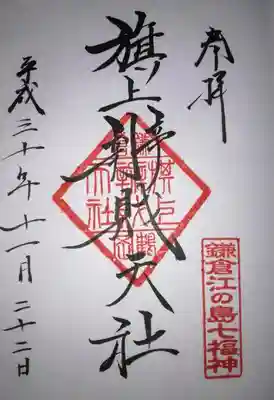 奉拝
旗上弁財天社
鎌倉江の島七福神
平成三十年十一月二十二日